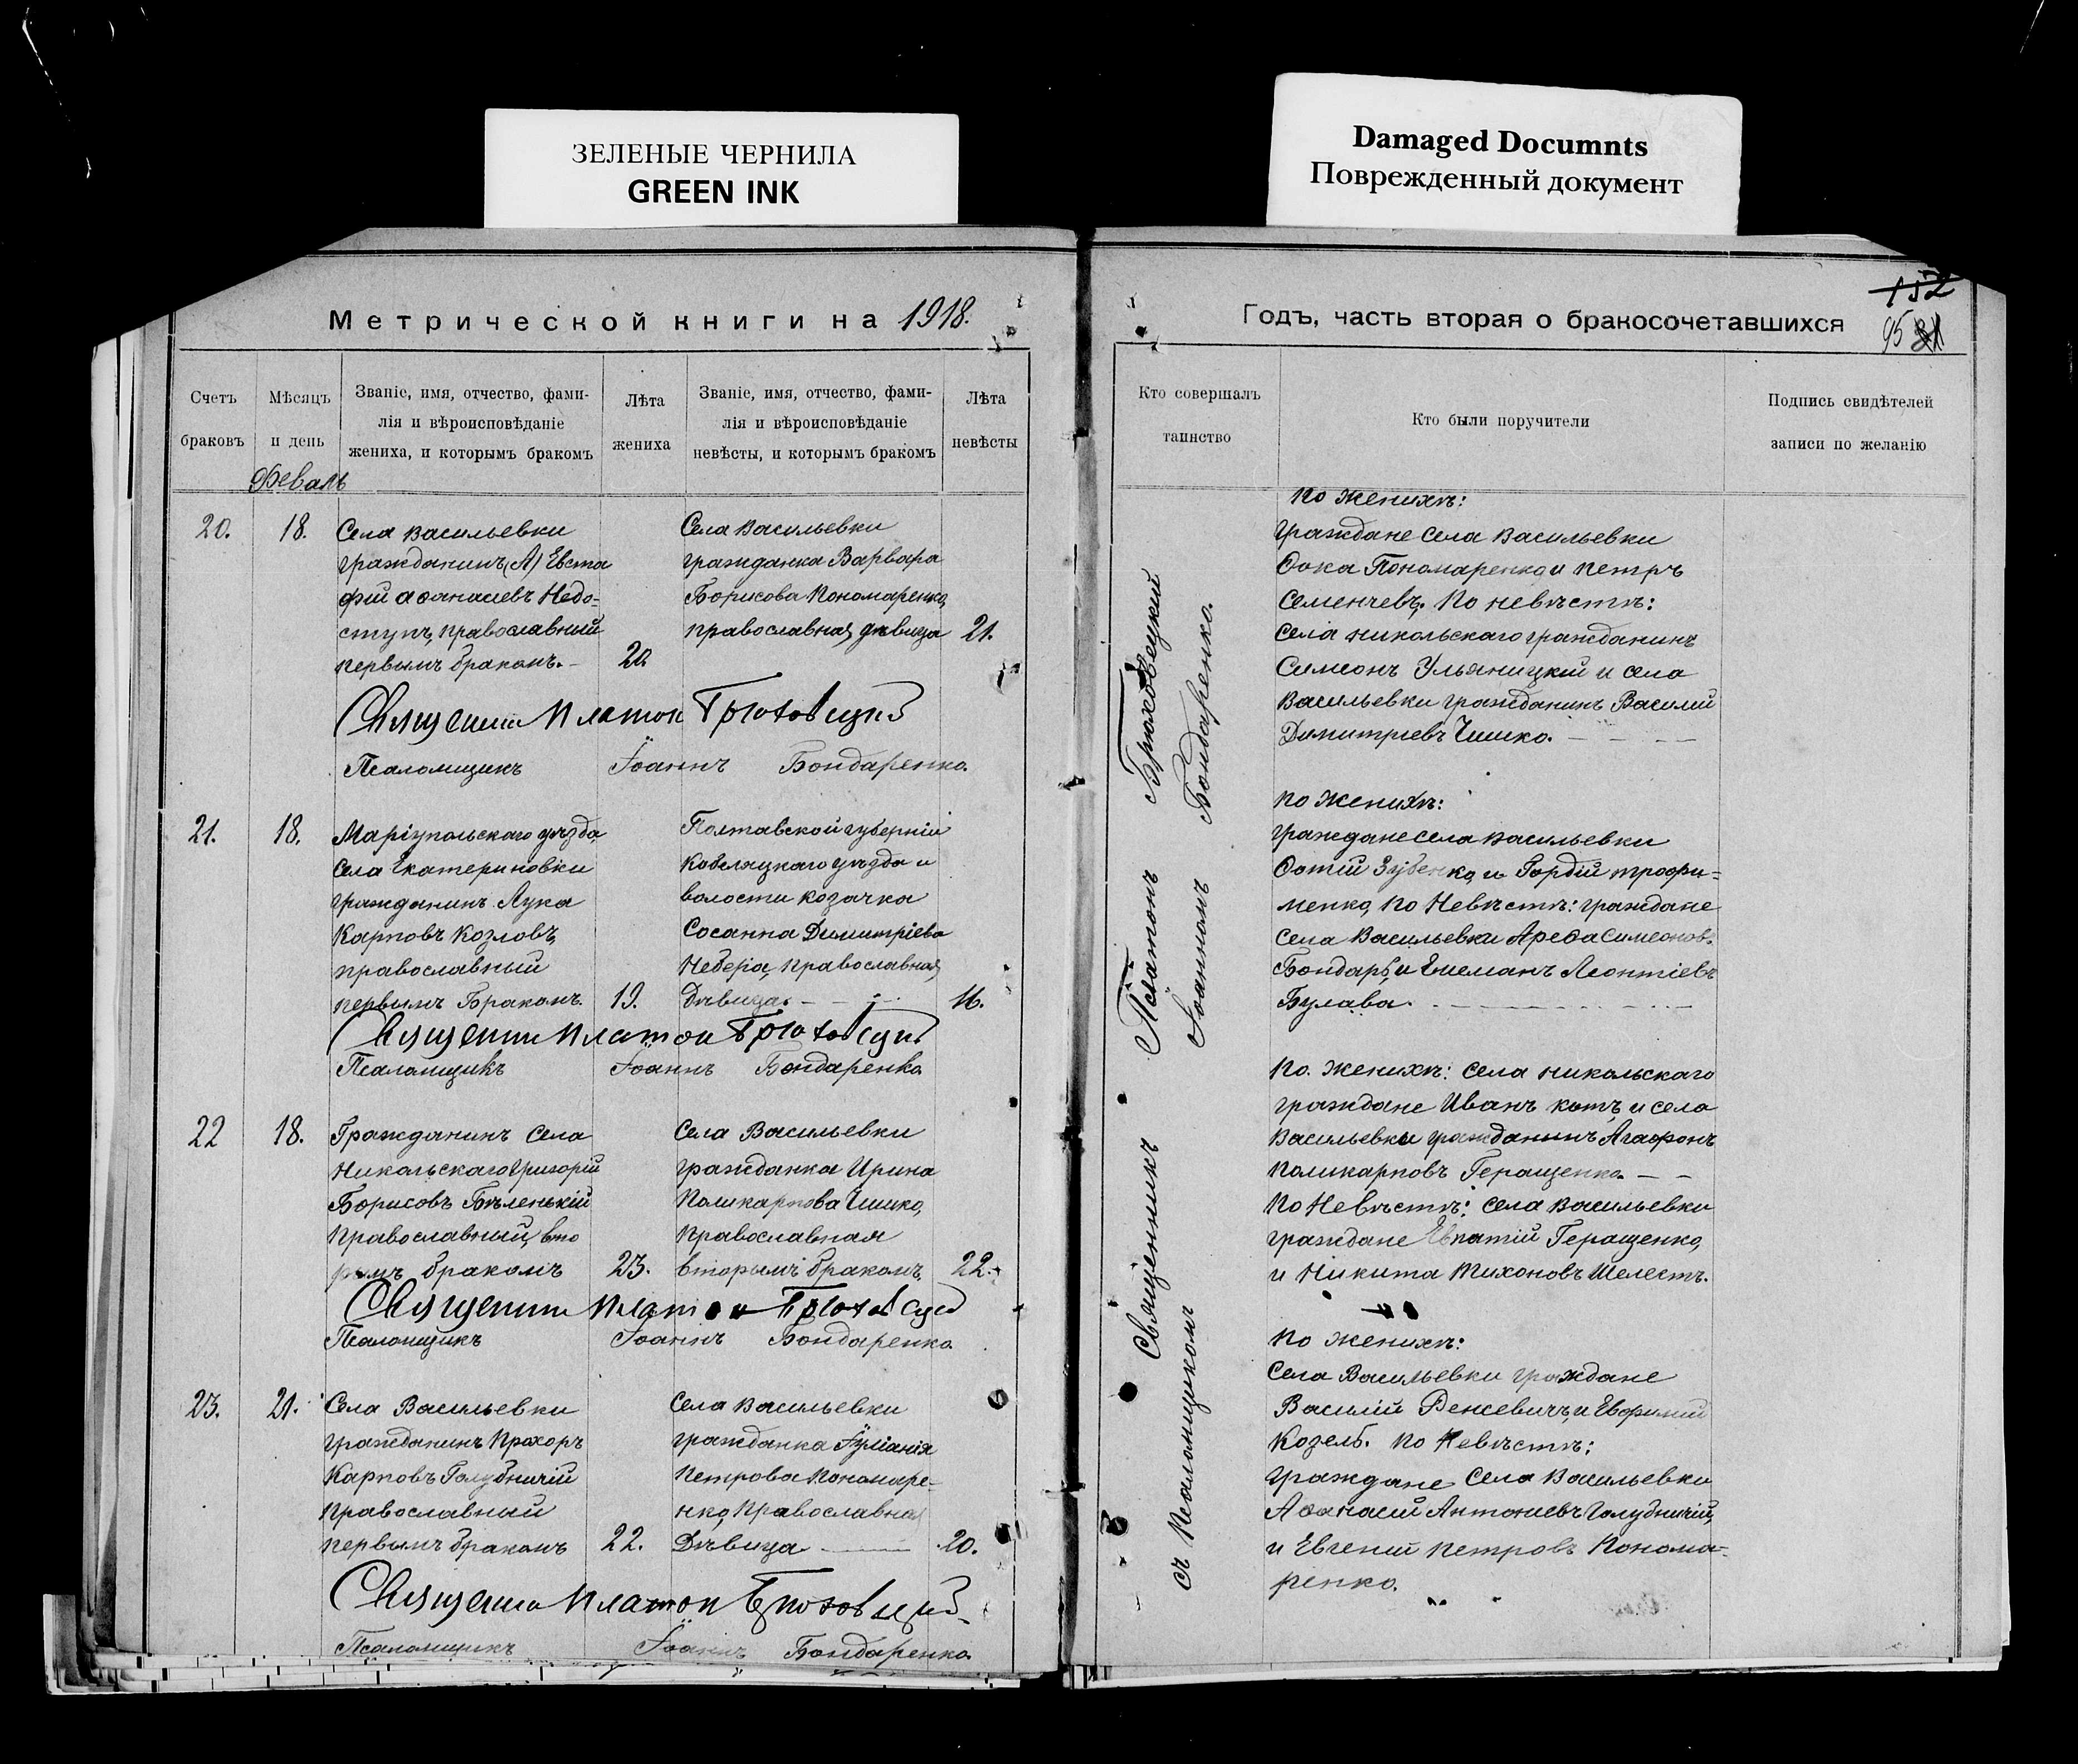 ЗЕЛЕНЫЕ ЧЕРНИЛА
GREEN INK
Damaged Documnts
Поврежденный документ
Метрической книги на 1918.
Счетъ браковъ
Мѣсяцъ и день
Званіе, имя, отчество, фами-
лія и вѣроисповѣданіе
жениха, и которымъ бракомъ
Лѣта жениха
Званіе, имя, отчество, фами-
лія и вѣроисповѣданіе
невѣсты, и которымъ бракомъ
Лѣта невѣсты
Феваль
20. 18.
Села Васильевки
гражданинъ (А) Евста
фій Аѳанасіевъ Недо=
ступъ, православный
первымъ бракомъ. –
20.
Села Васильевки
гражданка Варвара
Борисова Пономаренко,
православная, дѣвица
21.
Священникъ Платон Брюховецкий
Псаломщикъ Іоаннъ Бондаренко.
21. 18.
Маріупольскаго уѣзда,
села Екатериновки
гражданинъ Лука
Карповъ Козловъ,
православный
первымъ Бракомъ.
19.
Полтавской губерніи
Кобеляцкаго уѣзда и
волости козачка
Сосанна Димитріева
Небера, православная,
Дѣвица. –
16.
Священник Платон Брюховецкий
Псаломщикъ Іоаннъ Бондаренко
22 18.
Гражданинъ села
Никольскаго Григорій
Борисовъ Бѣленькій
Православный, вто
рымъ бракомъ
23.
Села Васильевки
гражданка Ирина
Поликарпова Чишко,
Православная
вторымъ бракомъ,
22.
Священник Платон Брюховецкий
Псаломщикъ Іоаннъ Бондаренко.
23. 21.
Села Васильевки
гражданинъ Прохоръ
Карповъ Голубничій
православный
первымъ бракомъ
22.
Села Васильевки
гражданка Іуліанія
Петрова Пономаре-
нко, Православная
Дѣвица
20.
Священник Платон Брюховецкий
Псаломщикъ Іоаннъ Бондаренко.
152
95
Годъ, часть вторая о бракосочетавшихся
Кто совершалъ таинство
Кто были поручители
Подпись свидѣтелей
записи по желанію
Священникъ Платонъ Брюховецкий
съ Псаломщикомъ Іоанномъ Бондаренко.
По Женихѣ:
граждане села Васильевки
Ѳока Пономаренко, и Петръ
Семенчевъ. По невѣстѣ:
Села Никольскаго гражданинъ
Симеонъ Ульяницкій и села
Васильевки гражданинъ Василій
Димитріевъ Чишко. –
По Женихѣ:
граждане села Васильевки
Фотій Зубенко, и Гордій Трофи=
менко, По Невѣстѣ: граждане
села Васильевки Ареѳа Симеонов.
Бондарь, и Леонтіевъ
Булава.
По. Женихѣ: Села Никольскаго
граждане Иванъ Котъ, и села
Васильевки гражданинъ Агафонъ
Поликарповъ Геращенко. – –
По Невѣстѣ: Села Васильевки
граждане Евпатій Геращенко,
и Никита Тихоновъ Шелестъ.
По Женихѣ:
Села Васильевки граждане
Василій и Евфимій
Козелъ. По Невѣстѣ:
граждане Села Васильевки
Аѳанасій Антоніевъ Голубничій,
и Евгеній Петровъ Понома-
ренко.